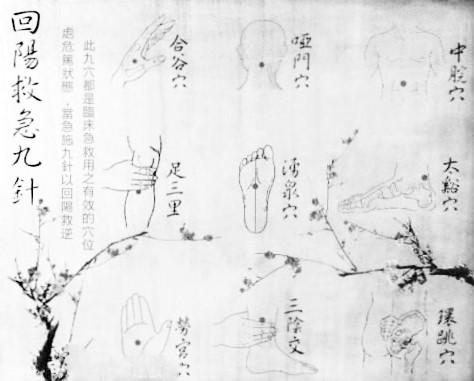 回陽救急九針
此九穴都是臨床急救用之有效的穴位
處危篤狀態，當急施九針以回陽救逆
合谷穴
瘂門穴
中脘穴
足三里
湧泉穴
太谿穴
勞宮穴
三陰交
環跳穴